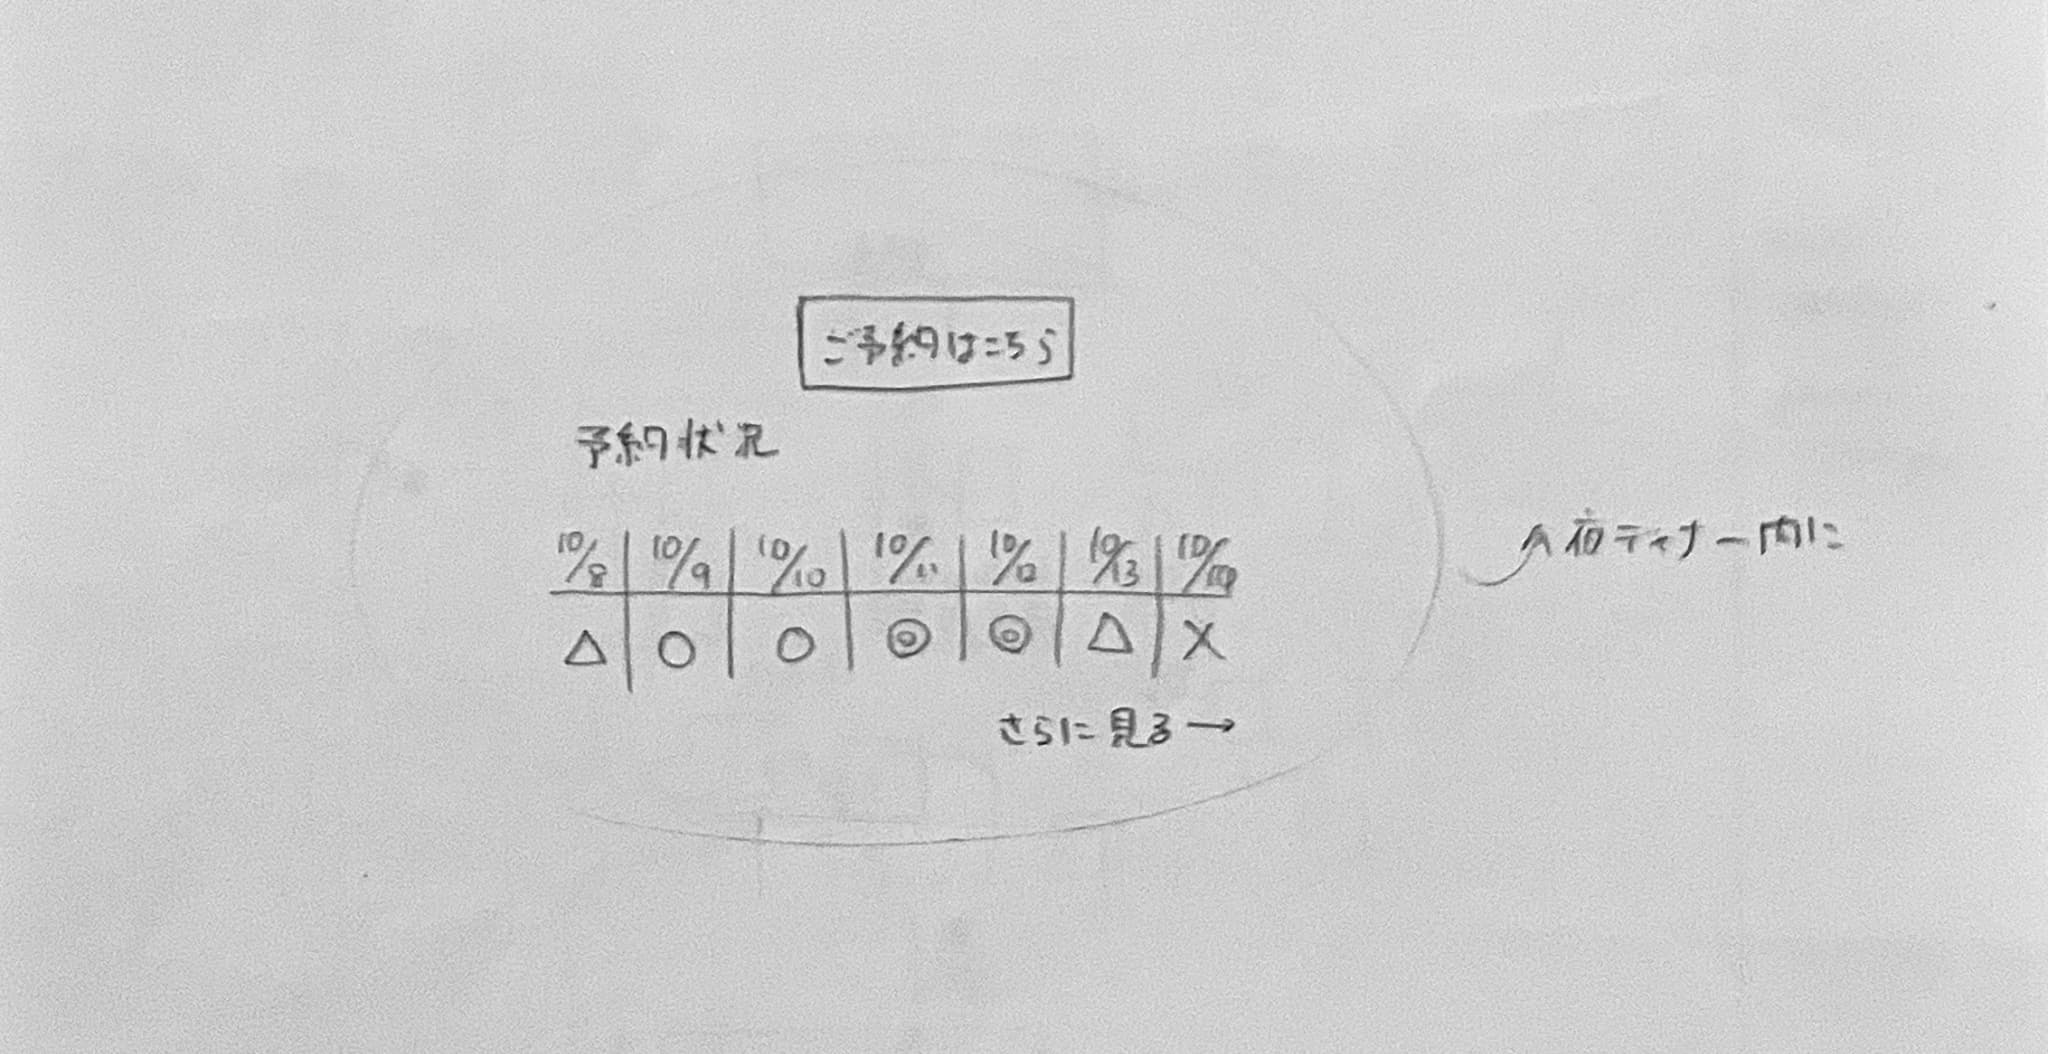 ご予約はこちら
予約状況
10/8 10/9 10/10 10/11 10/12 10/13 10/14
△ ○ ○ ◎ ◎ △ ×
さらに見る→
夜ディナー内に